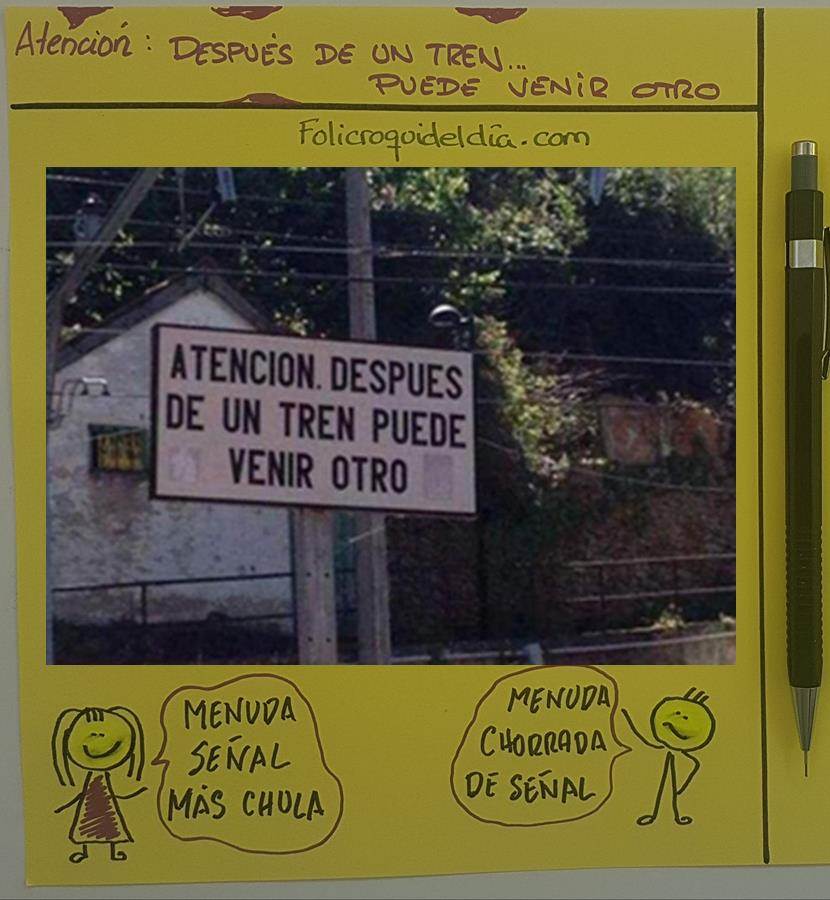 Atención: DESPUÉS DE UN TREN...
PUEDE VENIR OTRO
Folicroquideldía.com
ATENCION. DESPUES
DE UN TREN PUEDE
VENIR OTRO
MENUDA
SEÑAL
MÁS CHULA
MENUDA
CHORRADA
DE SEÑAL